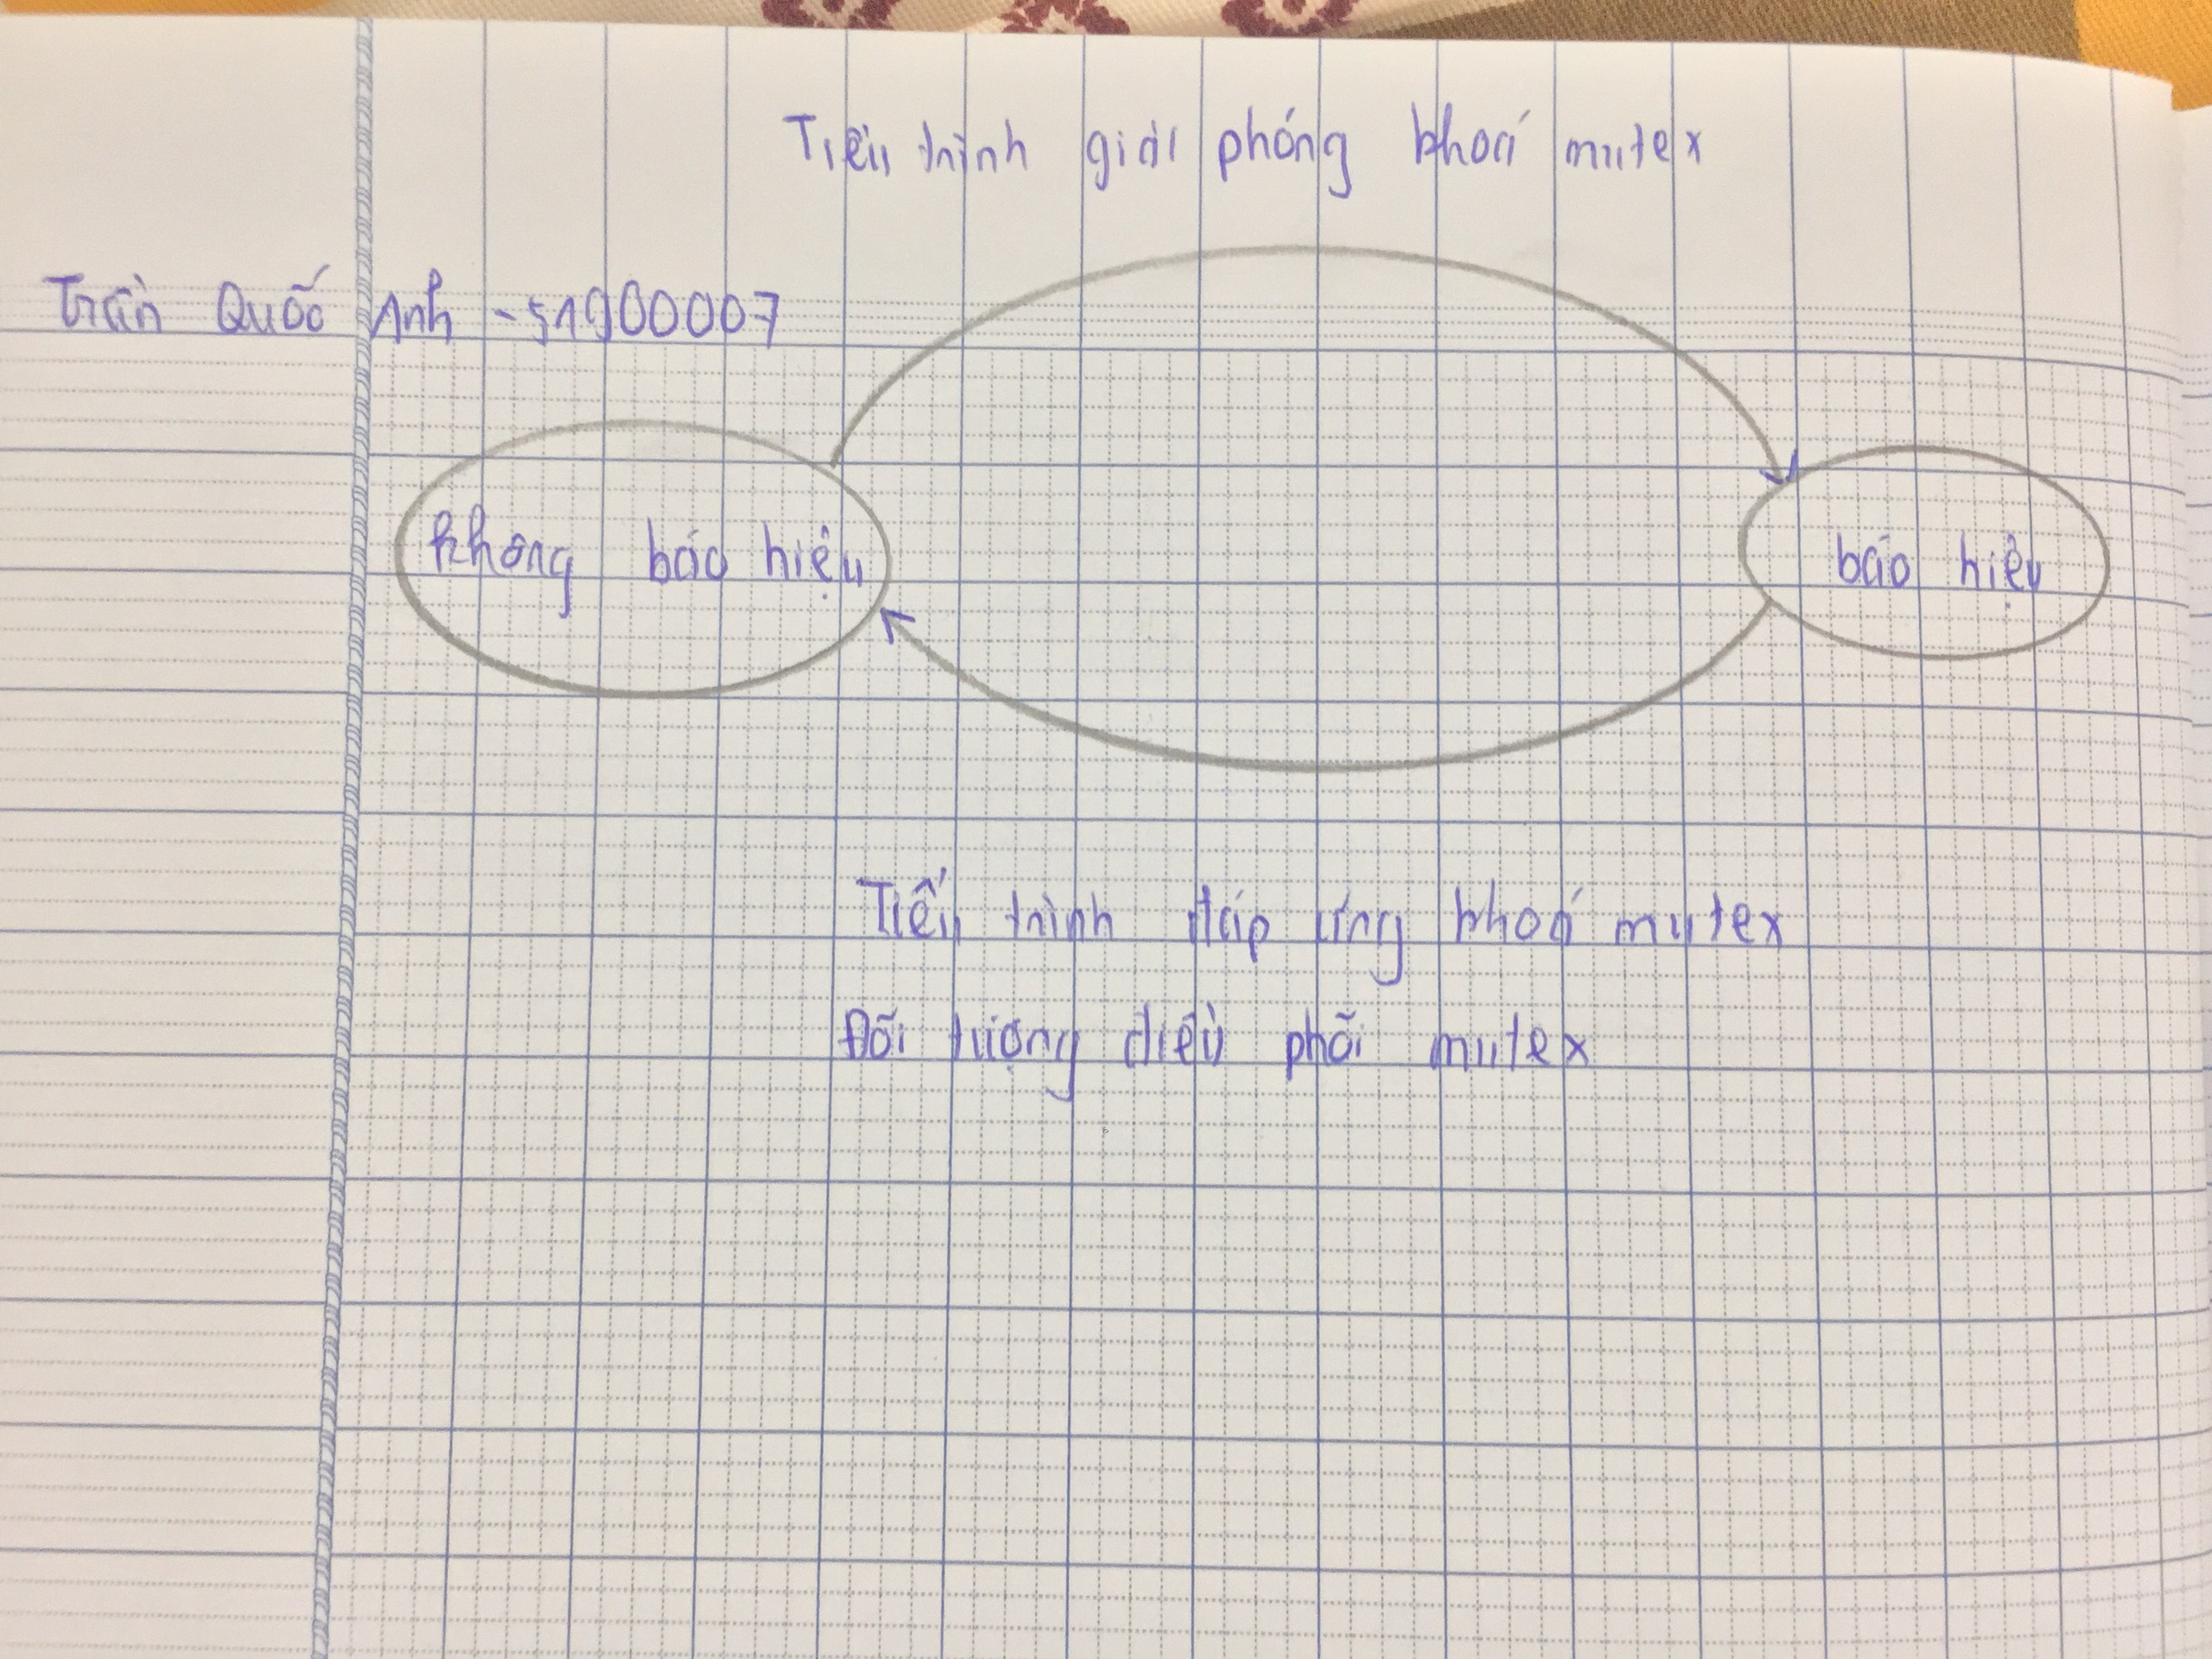 Tiến trình giải phóng khoá mutex
Trần Quốc Anh - 51900007
không báo hiệu
báo hiệu
Tiến trình đáp ứng khoá mutex
Đối tượng điều phối mutex